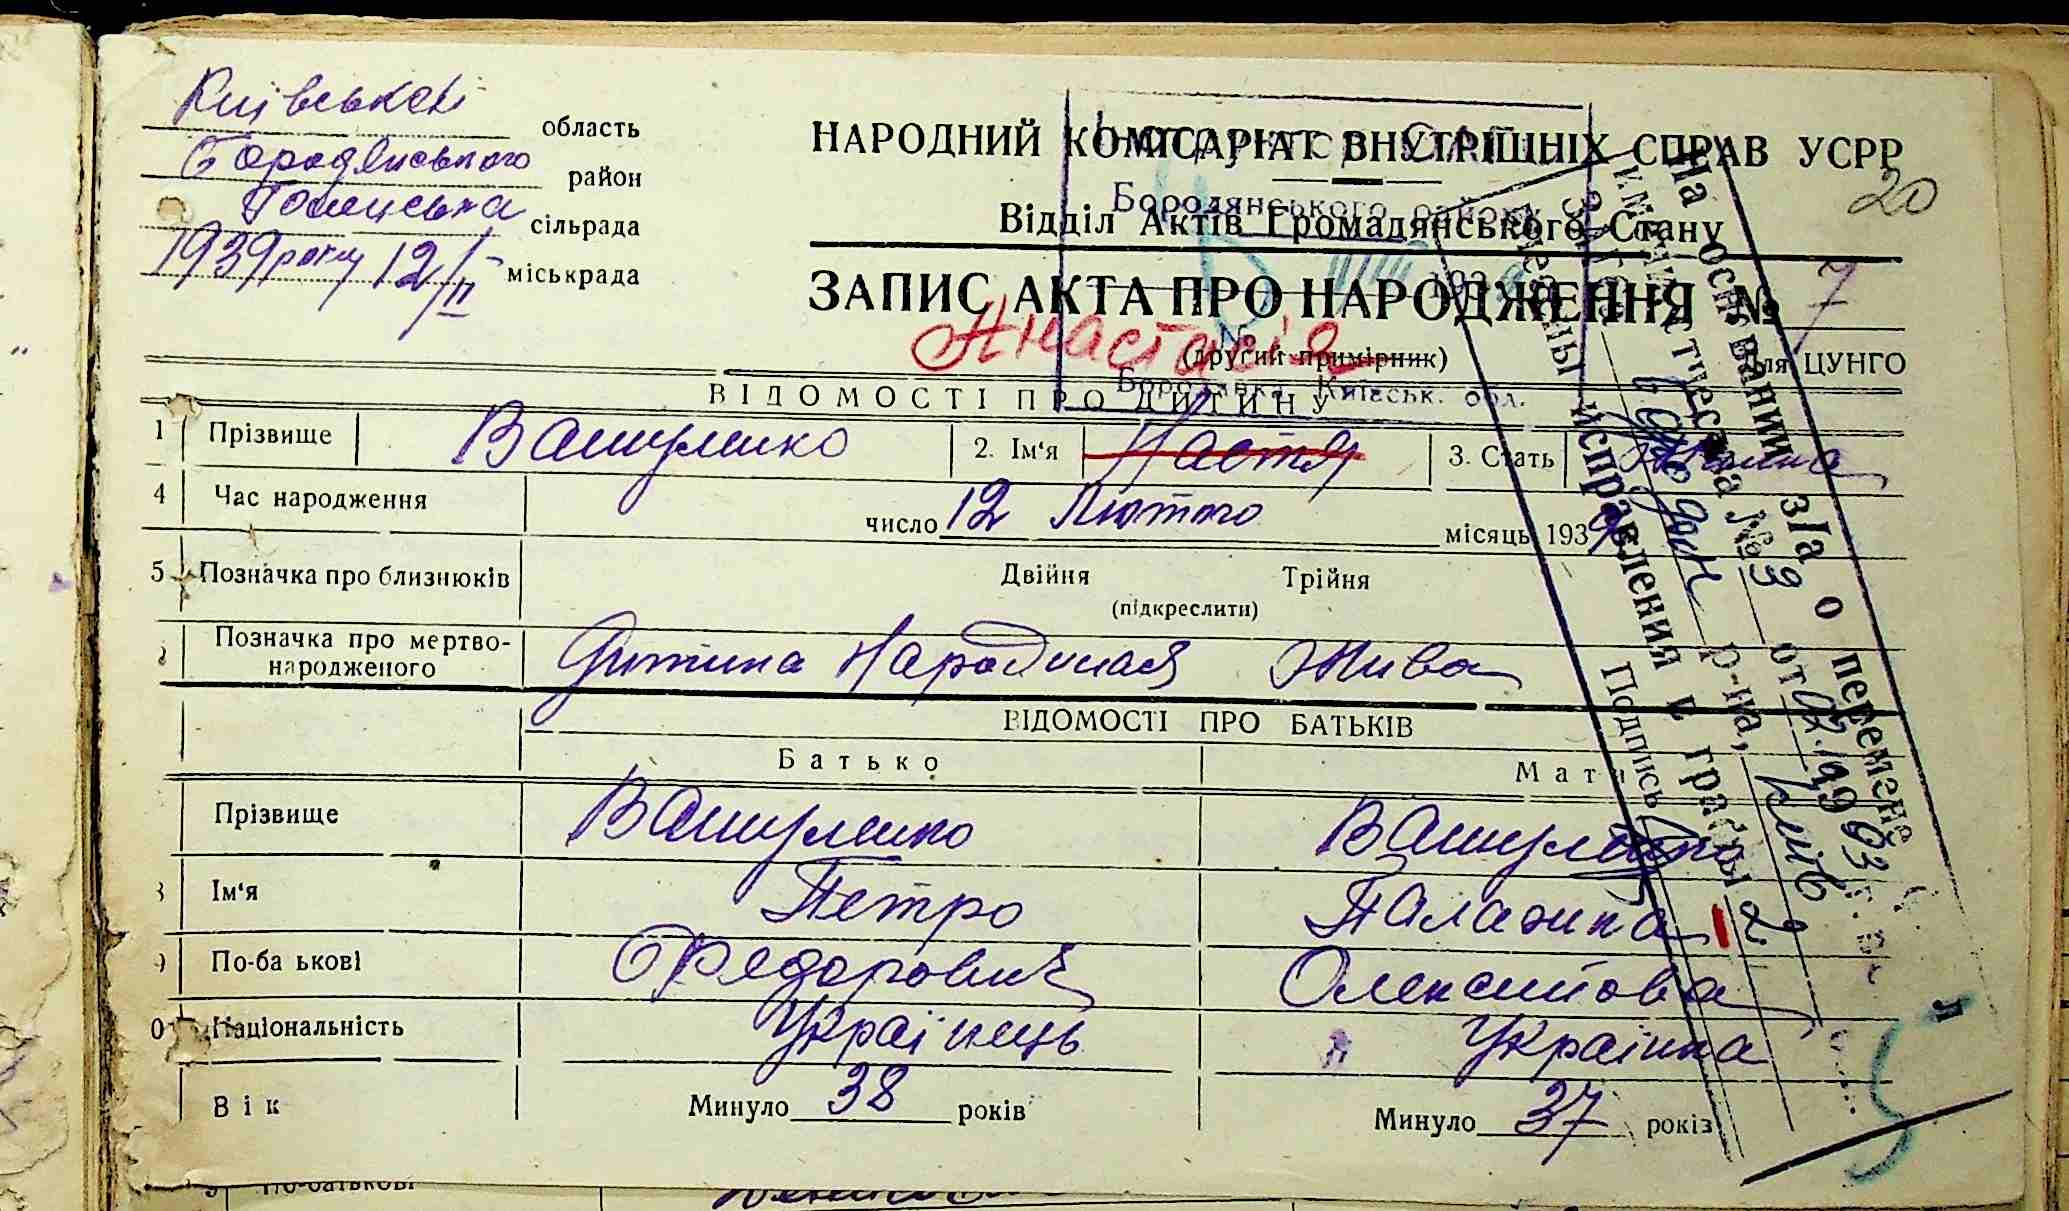 Київської область
Бородянського район
сільрада
1939 року 12/II міськрада
НАРОДНИЙ КОМІСАРІАТ ВНУТРІШНІХ СПРАВ УСРР
20
Бородянського району
Відділ Актів Громадянського Стану
ЗАПИС АКТА ПРО НАРОДЖЕННЯ № 7
Анастасія
(другий примірник) для ЦУНГО
Бородянка, Київськ. обл.
ВІДОМОСТІ ПРО ДИТИНУ
1 Прізвище Вашуленко 2. Ім'я Настя 3. Стать
4 Час народження число 12 Лютого місяць 1939
5 Позначка про близнюків Двійня Трійня
(підкреслити)
Позначка про мертво-
народженого Дитина Народилася Жива
ВІДОМОСТІ ПРО БАТЬКІВ
Батько Мати
Прізвище Вашуленко Вашуленко
Ім'я Петро Палажка
По-ба ькові Федорович Олексиїова
0 Національність Українець Українка
Вік Минуло 38 років Минуло 37 років
На основании з/а о перемене
имени
текста № 9 от 1993 г.
ЗАГС Бородян р-на,
внесены исправления в графы 2
Подпись